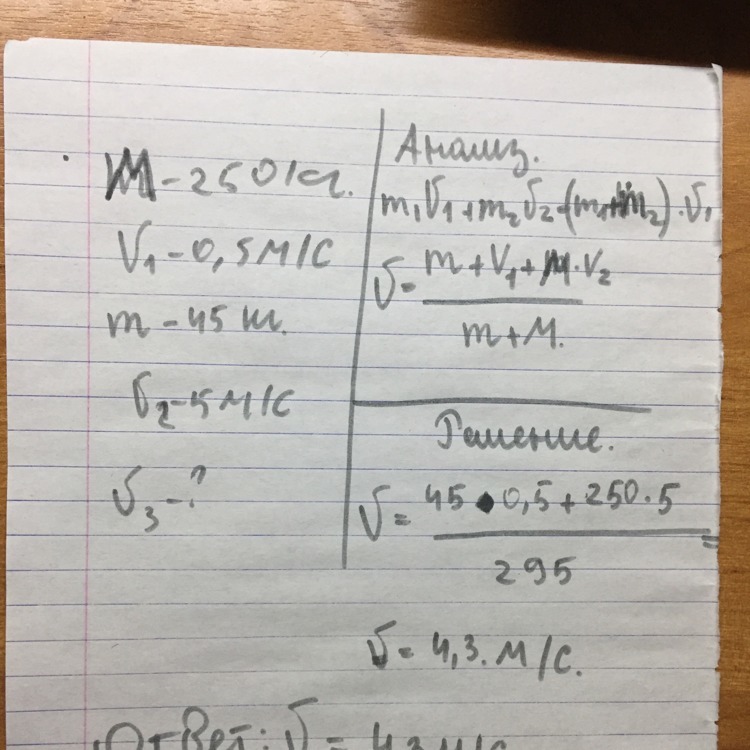 М - 250 кг.
V₁ - 0,5 м/с
m - 45 кг.
V₂ - 5 м/с
V₃ - ?
Анализ.
m₁V₁ + m₂V₂ = (m₁ + m₂) · V₁
V = m + V₁ + М · V₂
m + М.
Решение.
V = 45 • 0,5 + 250 · 5 =
295
V = 4,3. м/с.
Ответ: V = 4,3 м/с